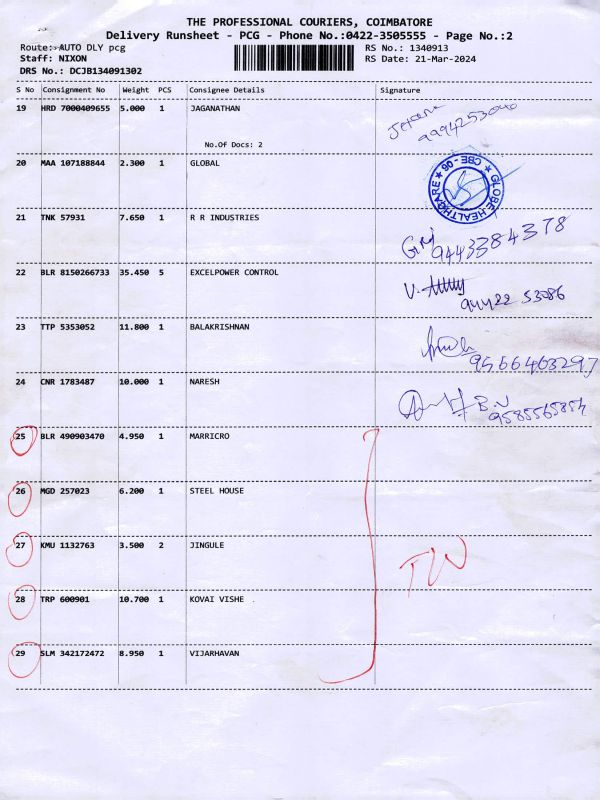 THE PROFESSIONAL COURIERS, COIMBATORE
Delivery Runsheet - PCG - Phone No.:0422-3505555 - Page No.:2
Route:-AUTO DLY pcg RS No.: 1340913
Staff: NIXON RS Date: 21-Mar-2024
DRS No.: DCJB134091302
S No Consignment No Weight PCS Consignee Details Signature
19 HRD 7000409655 5.000 1 JAGANATHAN
9994253040
No.Of Docs: 2
20 MAA 107188844 2.300 1 GLOBAL
★ GLOBE HEALTHCARE ★ CBE - 06
21 TNK 57931 7.650 1 R R INDUSTRIES
9443384378
22 BLR 8150266733 35.450 5 EXCELPOWER CONTROL
94422 53086
23 TTP 5353052 11.800 1 BALAKRISHNAN
9566463297
24 CNR 1783487 10.000 1 NARESH
B.V
25 BLR 490903470 4.950 1 MARRICRO
26 MGD 257023 6.200 1 STEEL HOUSE
27 KMU 1132763 3.500 2 JINGULE
28 TRP 600901 10.700 1 KOVAI VISHE .
29 SLM 342172472 8.950 1 VIJARHAVAN